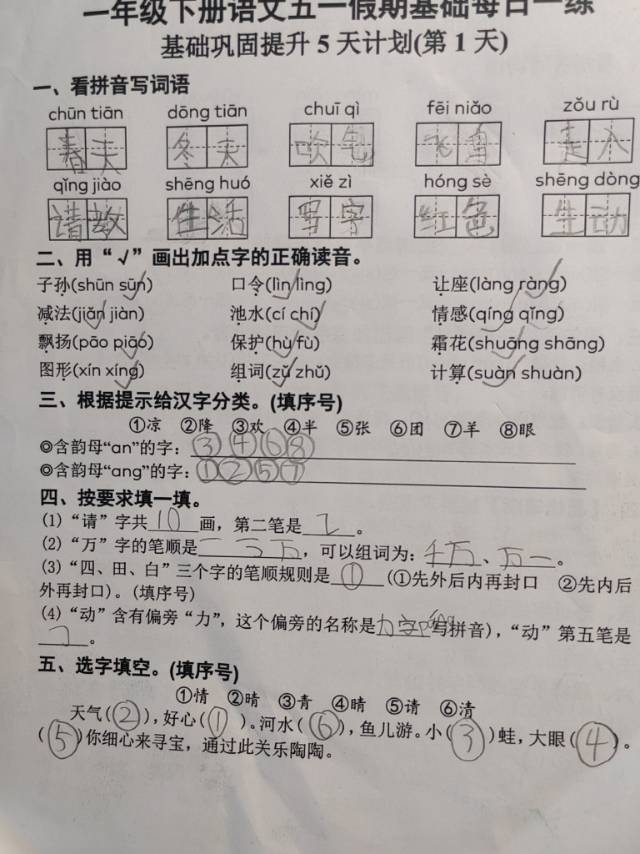 一年级下册语文五一假期基础每日一练
基础巩固提升5天计划(第1天)
一、看拼音写词语
chūn tiān dōng tiān chuī qì fēi niǎo zǒu rù
春天 冬天 吹气 飞鸟 走入
qǐng jiào shēng huó xiě zì hóng sè shēng dòng
请教 生活 写字 红色 生动
二、用“√”画出加点字的正确读音。
子孙(shūn sūn) 口令(lìn lìng) 让座(làng ràng)
减法(jiǎn jiàn) 池水(cí chí) 情感(qíng qǐng)
飘扬(pāo piāo) 保护(hù fù) 霜花(shuāng shāng)
图形(xín xíng) 组词(zǔ zhǔ) 计算(suàn shuàn)
三、根据提示给汉字分类。(填序号)
①凉 ②降 ③欢 ④半 ⑤张 ⑥团 ⑦羊 ⑧眼
◎含韵母“an”的字：③④⑥⑧
◎含韵母“ang”的字：①②⑤⑦
四、按要求填一填。
(1)“请”字共10画，第二笔是㇊。
(2)“万”字的笔顺是一 丂 万，可以组词为：千万、万一。
(3)“四、田、白”三个字的笔顺规则是①(①先外后内再封口 ②先内后
外再封口)。(填序号)
(4)“动”含有偏旁“力”，这个偏旁的名称是力字旁写拼音)，“动”第五笔是
㇆。
五、选字填空。(填序号)
①情 ②晴 ③青 ④睛 ⑤请 ⑥清
天气(②)，好心(①)。河水(⑥)，鱼儿游。小(③)蛙，大眼(④)。
(⑤)你细心来寻宝，通过此关乐陶陶。